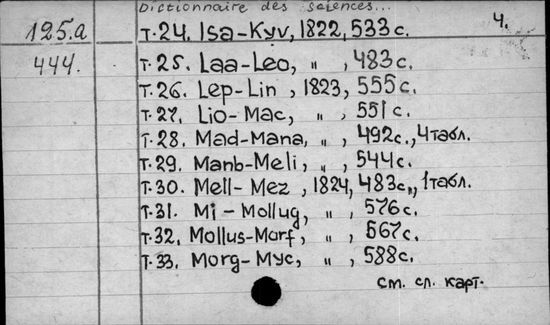 Dictionnaire des sciences...
4.
125.a т.24. Isa-Kyv, 1822, 533 с.
444. т.25. Laa-Leo, „ , 483 с.
т.26. Lep-Lin, 1823, 555 с.
т.27. Lio-Mac, „ , 551 с.
т.28. Mad-Mana, „ , 492 с., 4 табл.
т.29. Manb-Meli, „ , 544 с.
т.30. Mell-Mez, 1824, 483 с., 1 табл.
т.31. Mi-Mollug, „ , 576 с.
т.32. Mollus-Morf, „ , 567 с.
т.33. Morg-Myc, „ , 588 с.
см. сл. карт.